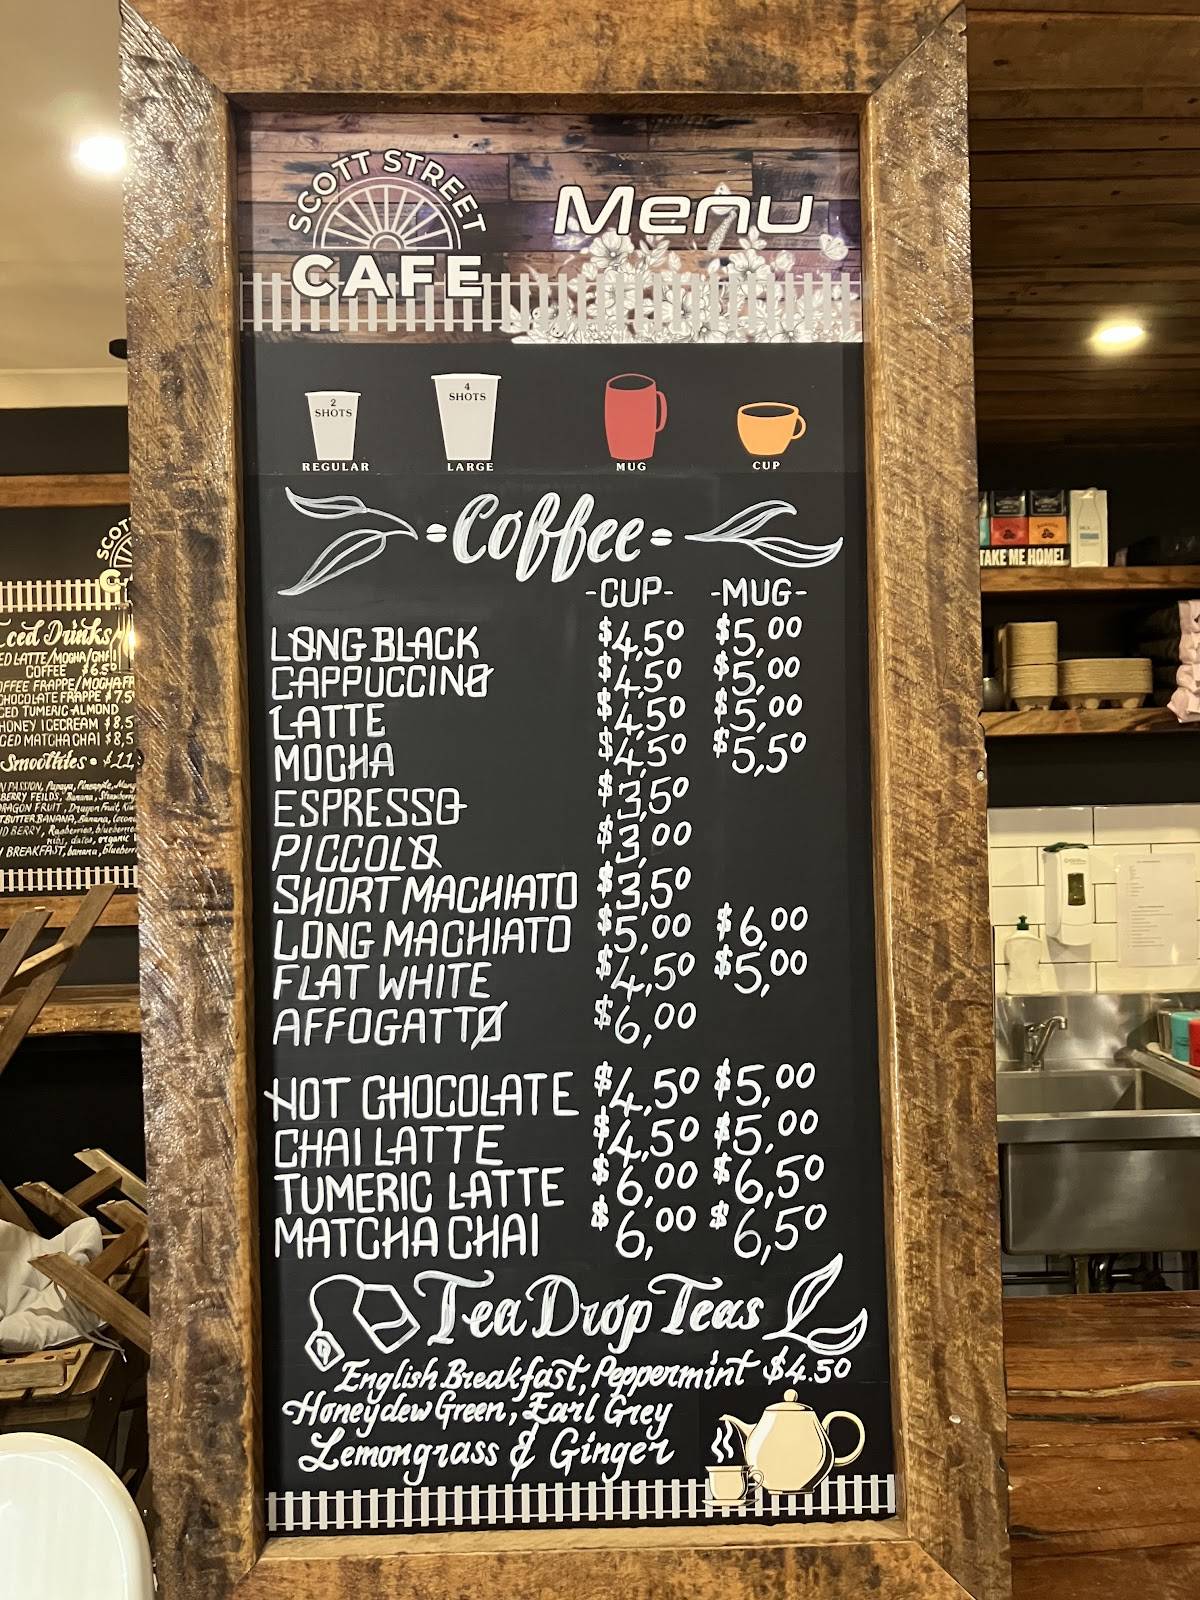 SCOTT STREET
CAFE
Menu
2 SHOTS
4 SHOTS
REGULAR LARGE MUG CUP
Coffee
-CUP- -MUG-
LONG BLACK $4,50 $5,00
CAPPUCCINO $4,50 $5,00
LATTE $4,50 $5,00
MOCHA $4,50 $5,50
ESPRESSO $3,50
PICCOLO $3,00
SHORT MACHIATO $3,50
LONG MACHIATO $5,00 $6,00
FLAT WHITE $4,50 $5,00
AFFOGATTO $6,00
HOT CHOCOLATE $4,50 $5,00
CHAI LATTE $4,50 $5,00
TUMERIC LATTE $6,00 $6,50
MATCHA CHAI $6,00 $6,50
Tea Drop Teas
English Breakfast, Peppermint $4.50
Honeydew Green, Earl Grey
Lemongrass & Ginger
SCOT
Iced Drinks
LATTE/MOCHA/CHAI
COFFEE $6.50
FRAPPE/MOCHA
CHOCOLATE FRAPPE $7.5
TUMERIC ALMOND
HONEY ICECREAM $8,5
MATCHA CHAI $8,5
Smoothies • $11,
PASSION, Papaya, Pineapple,
BERRY FEILDS, Banana,
DRAGON FRUIT, Dragon Fruit,
BANANA, Banana,
BERRY, Rasberries, blueberries
nibs, dates, organic
BREAKFAST, banana, blueberri
TAKE ME HOME!